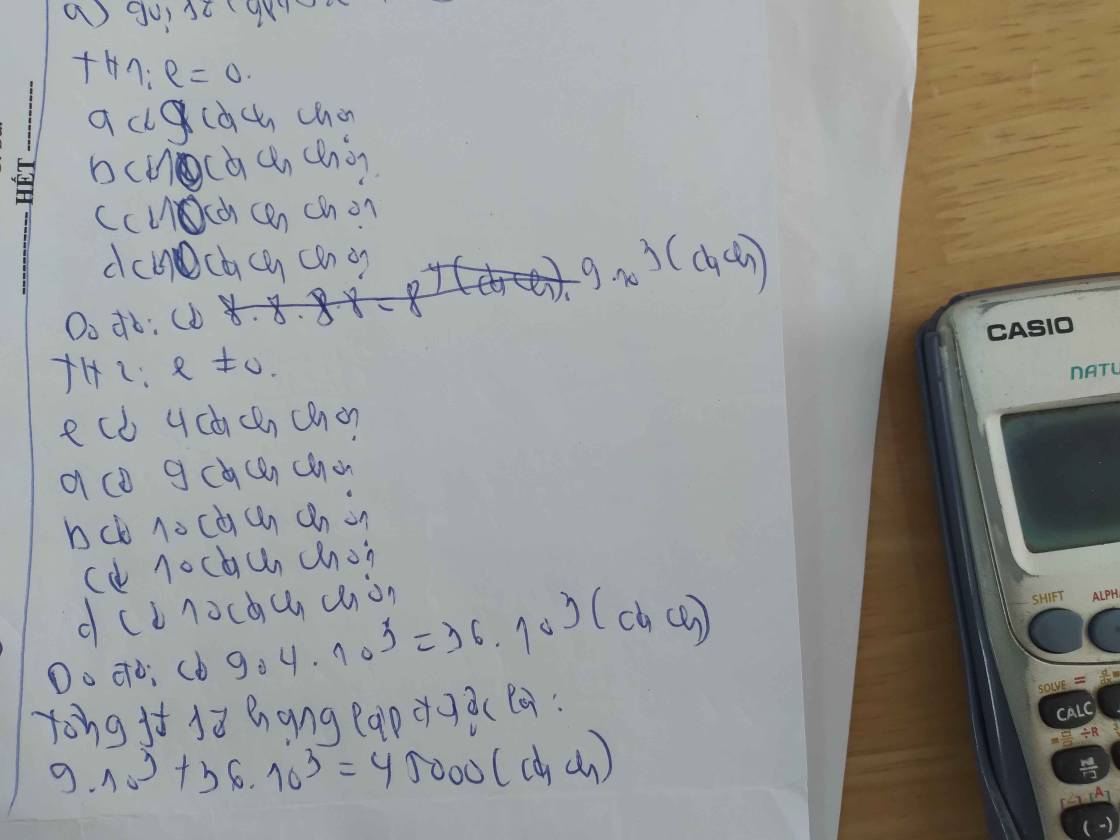 a) gọi số
TH1: e = 0.
a có 9 cách chọn
b có 10 cách chọn
c có 10 cách chọn
d có 10 cách chọn
Do đó: có 8.8.8.8 = 8⁴ (cách). 9.10³ (cách)
TH2: e ≠ 0.
e có 4 cách chọn
a có 9 cách chọn
b có 10 cách chọn
c có 10 cách chọn
d có 10 cách chọn
Do đó: có 9.4.10³ = 36.10³ (cách)
Tổng số số hạng lập được là:
9.10³ + 36.10³ = 45000 (cách)
HẾT
CASIO
NATU
SHIFT
ALPH
SOLVE =
CALC
(-)